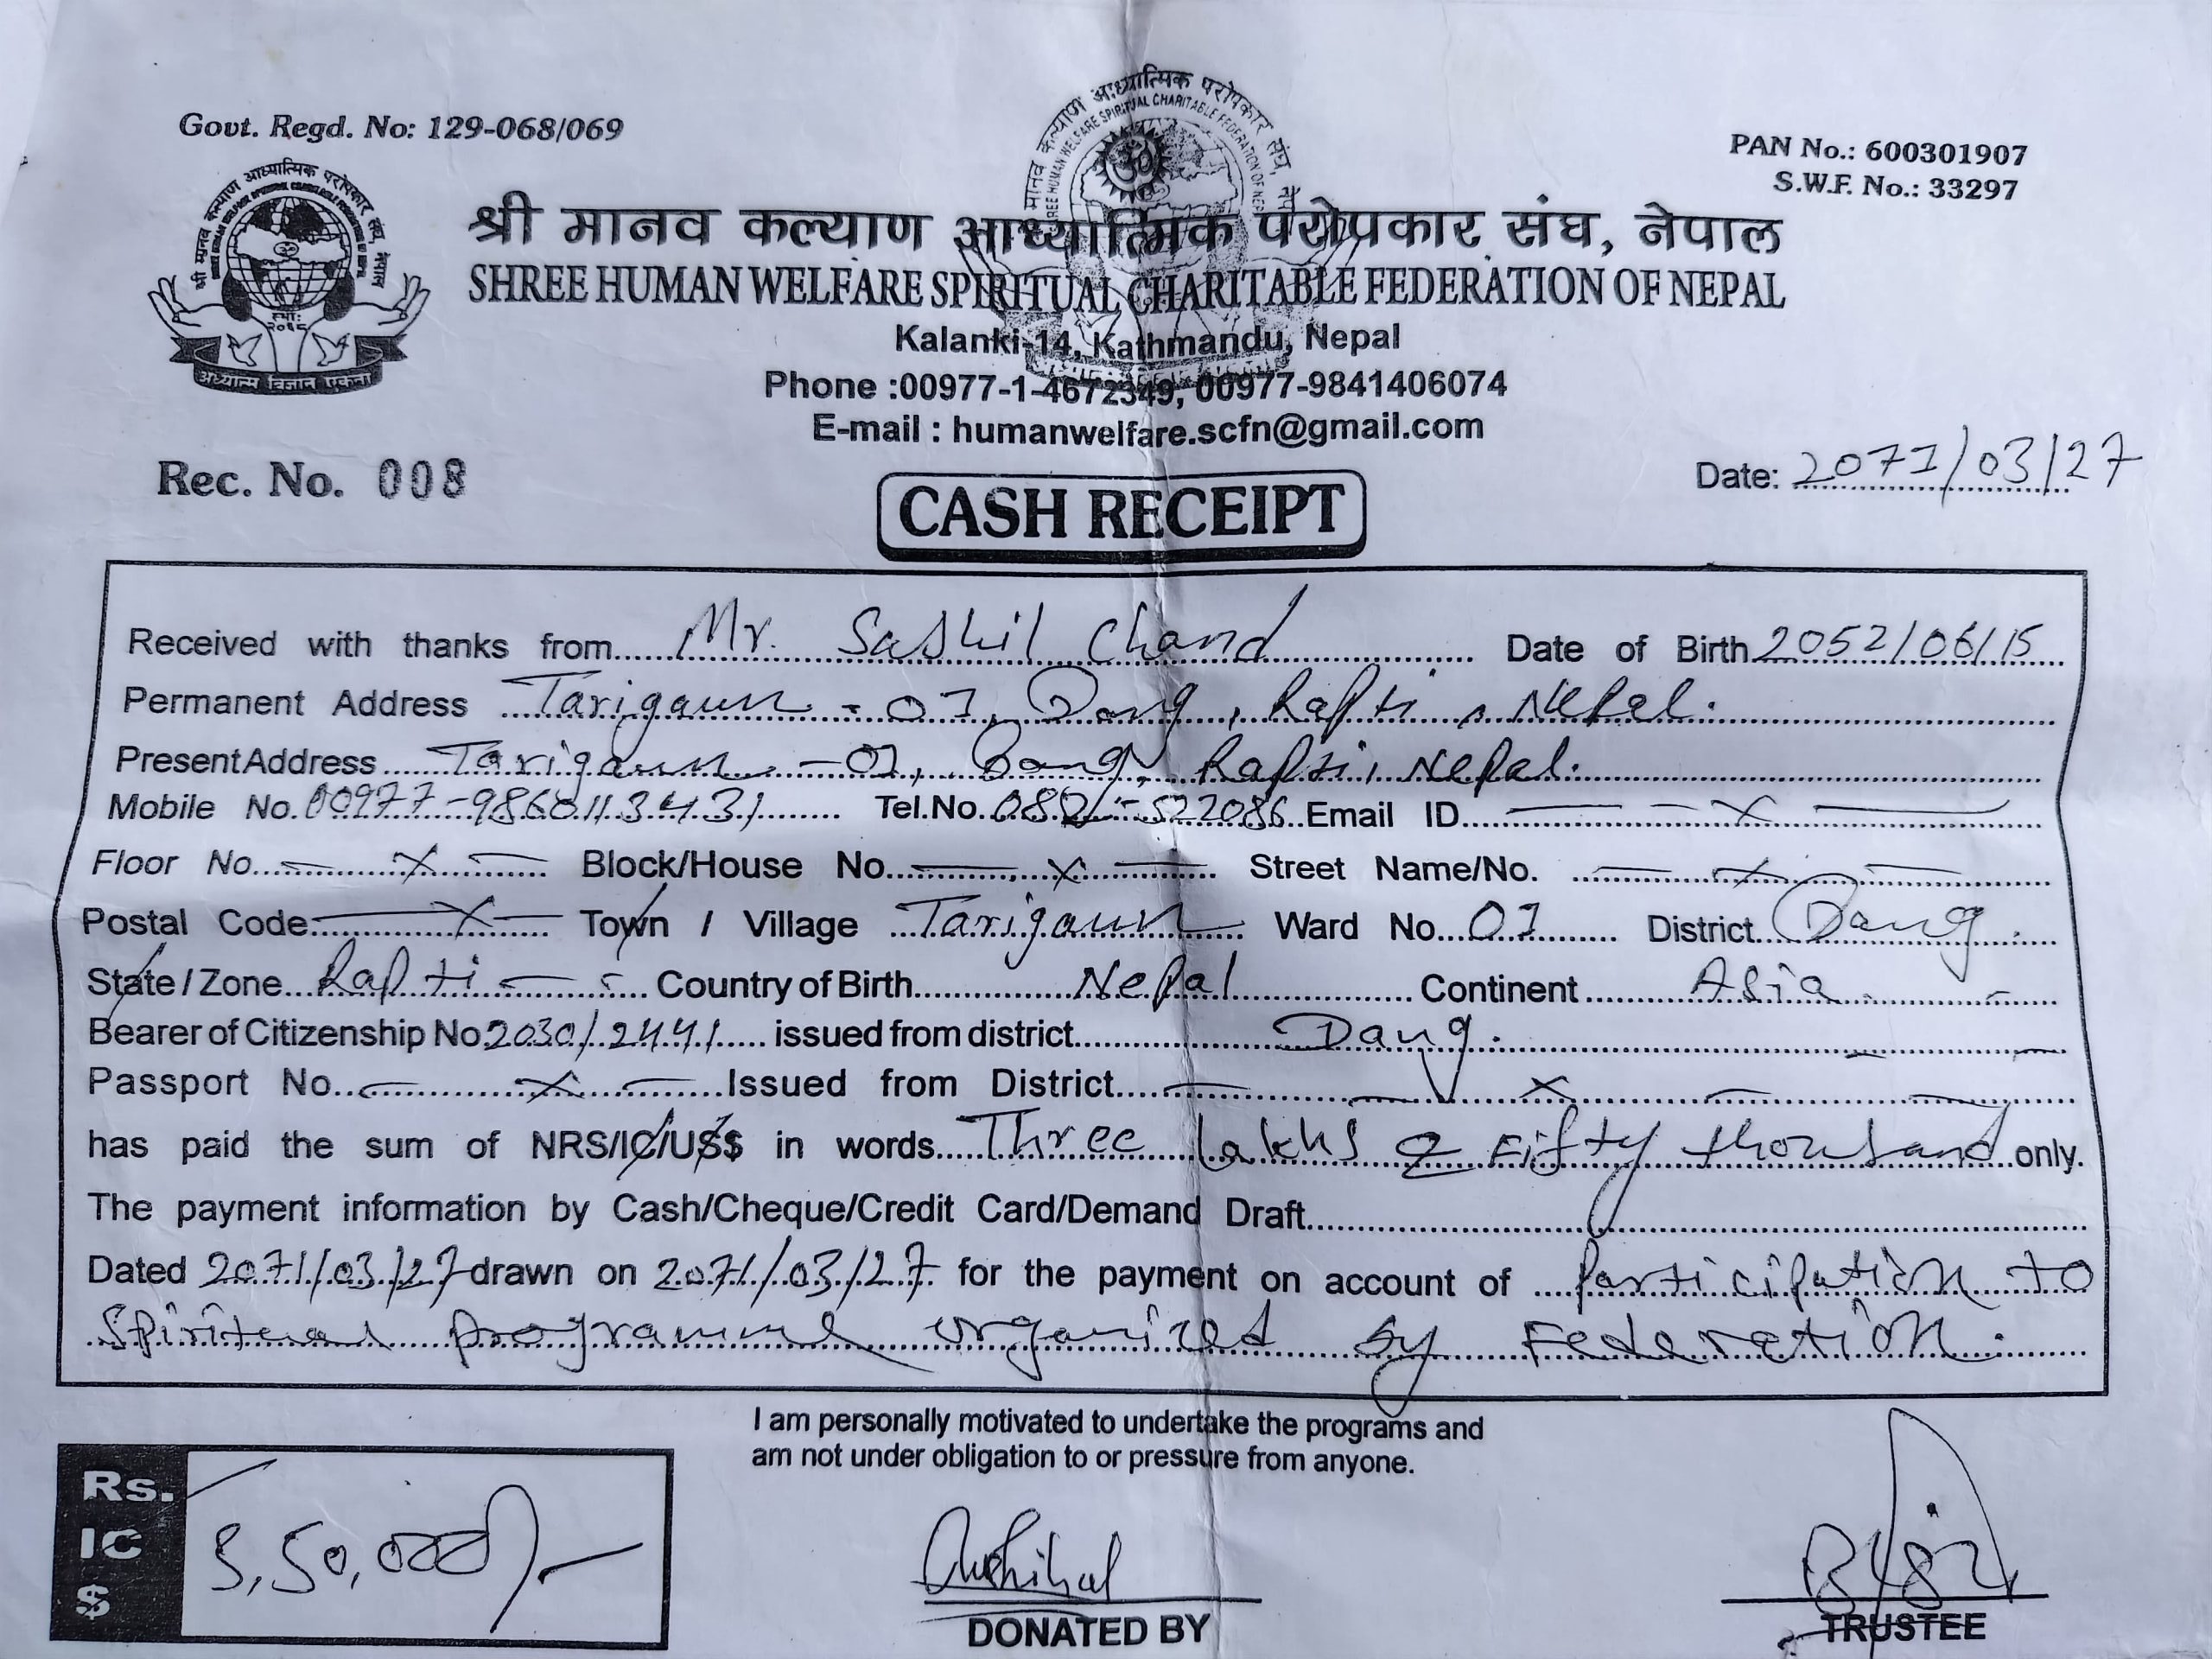 Govt. Regd. No: 129-068/069
PAN No.: 600301907
S.W.F. No.: 33297
श्री मानव कल्याण आध्यात्मिक परोपकार संघ, नेपाल
स्था:
२०६८
अध्यात्म विज्ञान एकता
श्री मानव कल्याण आध्यात्मिक परोपकार संघ, नेपाल
SHREE HUMAN WELFARE SPIRITUAL CHARITABLE FEDERATION OF NEPAL
Kalanki-14, Kathmandu, Nepal
Phone :00977-1-4672349, 00977-9841406074
E-mail : humanwelfare.scfn@gmail.com
Rec. No. 008
Date: 2071/03/27
CASH RECEIPT
Received with thanks from Mr. Sashil Chand Date of Birth 2052/06/15
Permanent Address Tarigaun - 01, Dang, Rapti, Nepal.
Present Address Tarigaun - 01, Dang, Rapti, Nepal.
Mobile No. 00977-9860113431 Tel.No. 082-522086 Email ID — x —
Floor No. — x — Block/House No. — x — Street Name/No. — x —
Postal Code: — x — Town / Village Tarigaun Ward No. 01 District Dang
State/Zone Rapti Country of Birth Nepal Continent Asia
Bearer of Citizenship No 2030/2441 issued from district Dang.
Passport No. — x — Issued from District — x —
has paid the sum of NRS/IC/US$ in words Three Lakhs & Fifty thousand only.
The payment information by Cash/Cheque/Credit Card/Demand Draft
Dated 2071/03/27 drawn on 2071/03/27 for the payment on account of participation to
Spiritual programme organized by Federation.
I am personally motivated to undertake the programs and
am not under obligation to or pressure from anyone.
Rs.
IC
$
3,50,000/-
DONATED BY
TRUSTEE